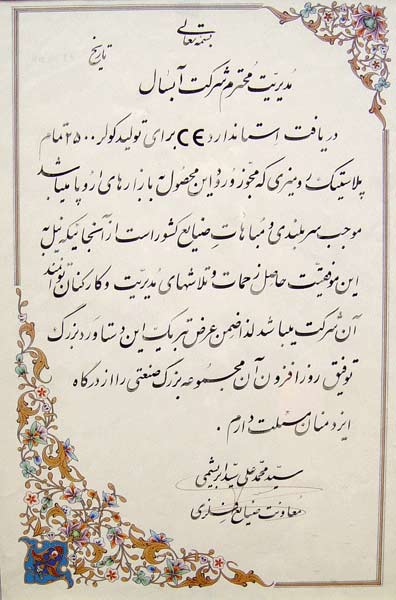 بسمه تعالی
تاریخ
مدیریت محترم شرکت آبسال
دریافت استاندارد CE برای تولید کولر ۲۵۰۰ تمام
پلاستیک رومیزی که مجوز ورود این محصول به بازارهای اروپا میباشد
موجب سربلندی و مباهات صنایع کشور است از آنجائیکه نیل به
این موفقیت حاصل زحمات و تلاشهای مدیریت و کارکنان توانمند
آن شرکت میباشد لذا ضمن عرض تبریک این دستاورد بزرگ
توفیق روزافزون آن مجموعه بزرگ صنعتی را از درگاه
ایزد منان مسئلت دارم .
سید محمد علی سید ابریشمی
معاونت صنایع فلزی